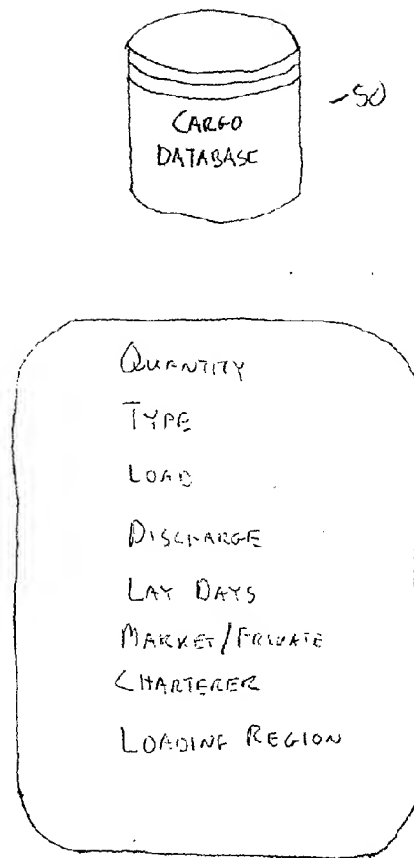 CARGO
DATABASE
50
QUANTITY
TYPE
LOAD
DISCHARGE
LAY DAYS
MARKET/PRIVATE
CHARTERER
LOADING REGION